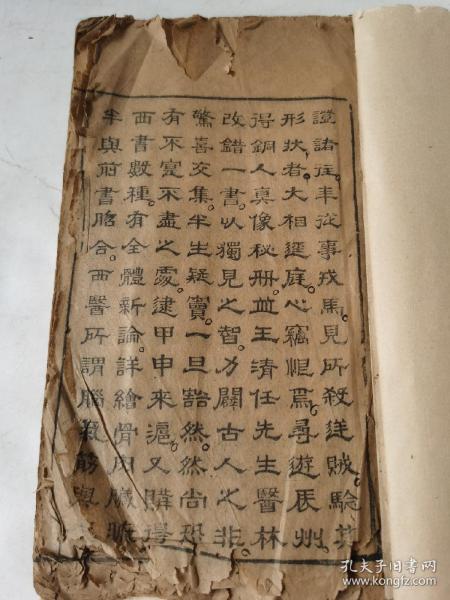 證諸往年從事戎馬見所殺逆賊驗其
形狀者大相逕庭心竊恨焉尋遊辰州
得銅人真像秘册並王清任先生醫林
改錯一書以獨見之智力闢古人之非
驚喜交集半生疑竇一旦豁然然尚恐
有不寔不盡之處逮甲申來滬又購得
西書數種有全體新論詳繪骨肉臟腑
半與前書脗合西醫所謂腦氣筋與
孔夫子旧书网
www.kongfz.com